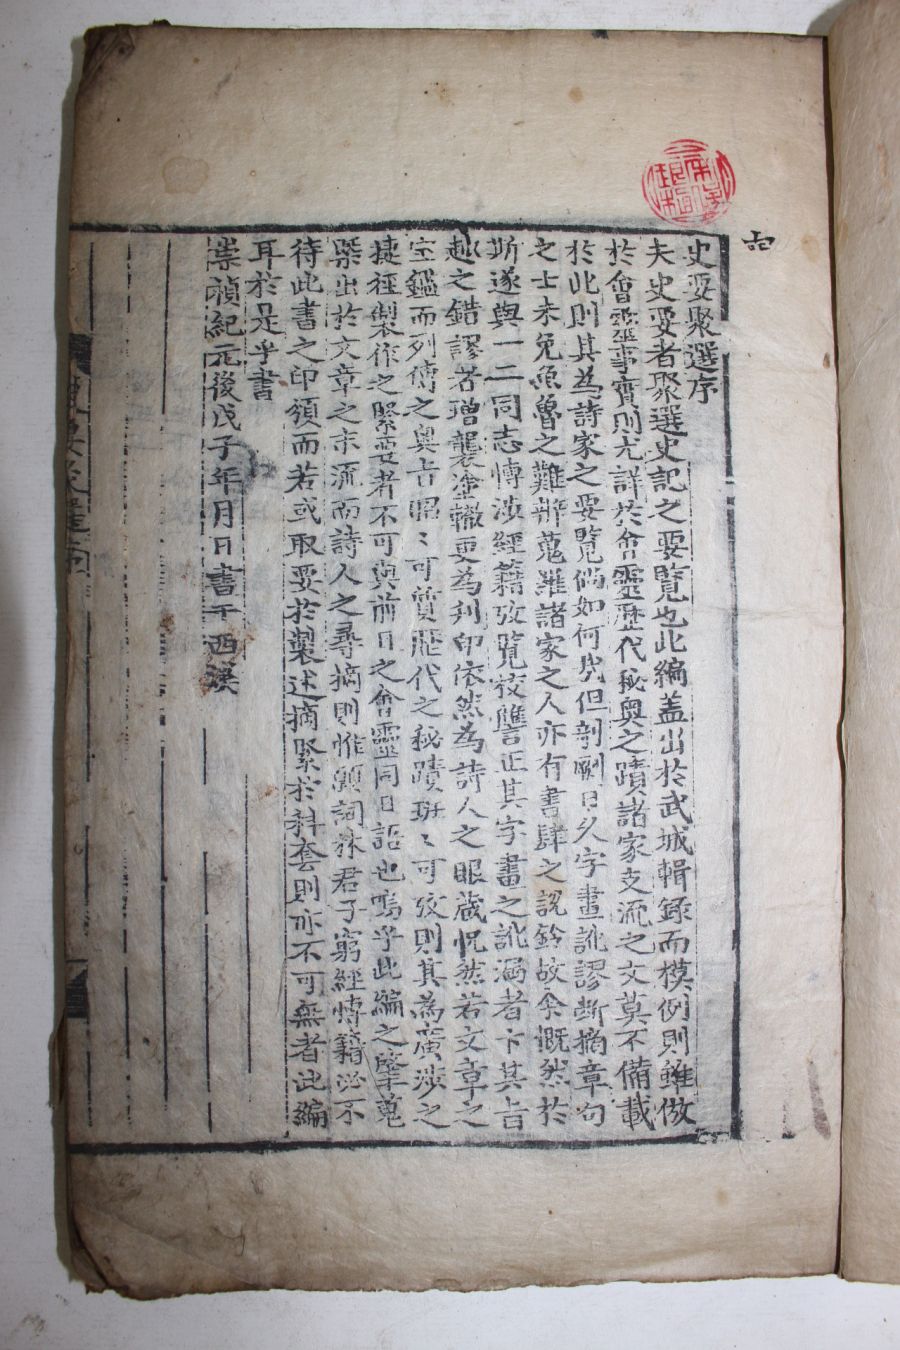 史要聚選序
夫史要者聚選史記之要覽也此編盖出於武城輯録而模例則雖倣
於會靈事實則尤詳於會靈歷代秘奧之蹟諸家支流之文莫不備載
於此則其為詩家之要覽倘如何㢤但剞劂日久字畫訛謬斷摘章句
之士未免魚魯之難辨蒐羅諸家之人亦有書肆之訛故余慨然於
斯遂與一二同志愽涉經籍攷覽校讐正其字畫之訛漏者卞其旨
趣之錯謬者增襲塗轍更為刋印依然為詩人之眼蔵怳然若文章之
宝鑑而列傳之奧旨昭〻可質歴代之秘蹟班〻可攷則其為廣涉之
捷徑製作之緊要者不可與前日之會靈同日語也嗚乎此編之肇蒐
槩出於文章之末流而詩人之尋摘則惟願詞林君子窮經愽籍必不
待此書之印領而若或取要於製述摘緊於科套則亦不可無者此編
耳於是乎書
崇禎紀元後戊子年月日書于西溪